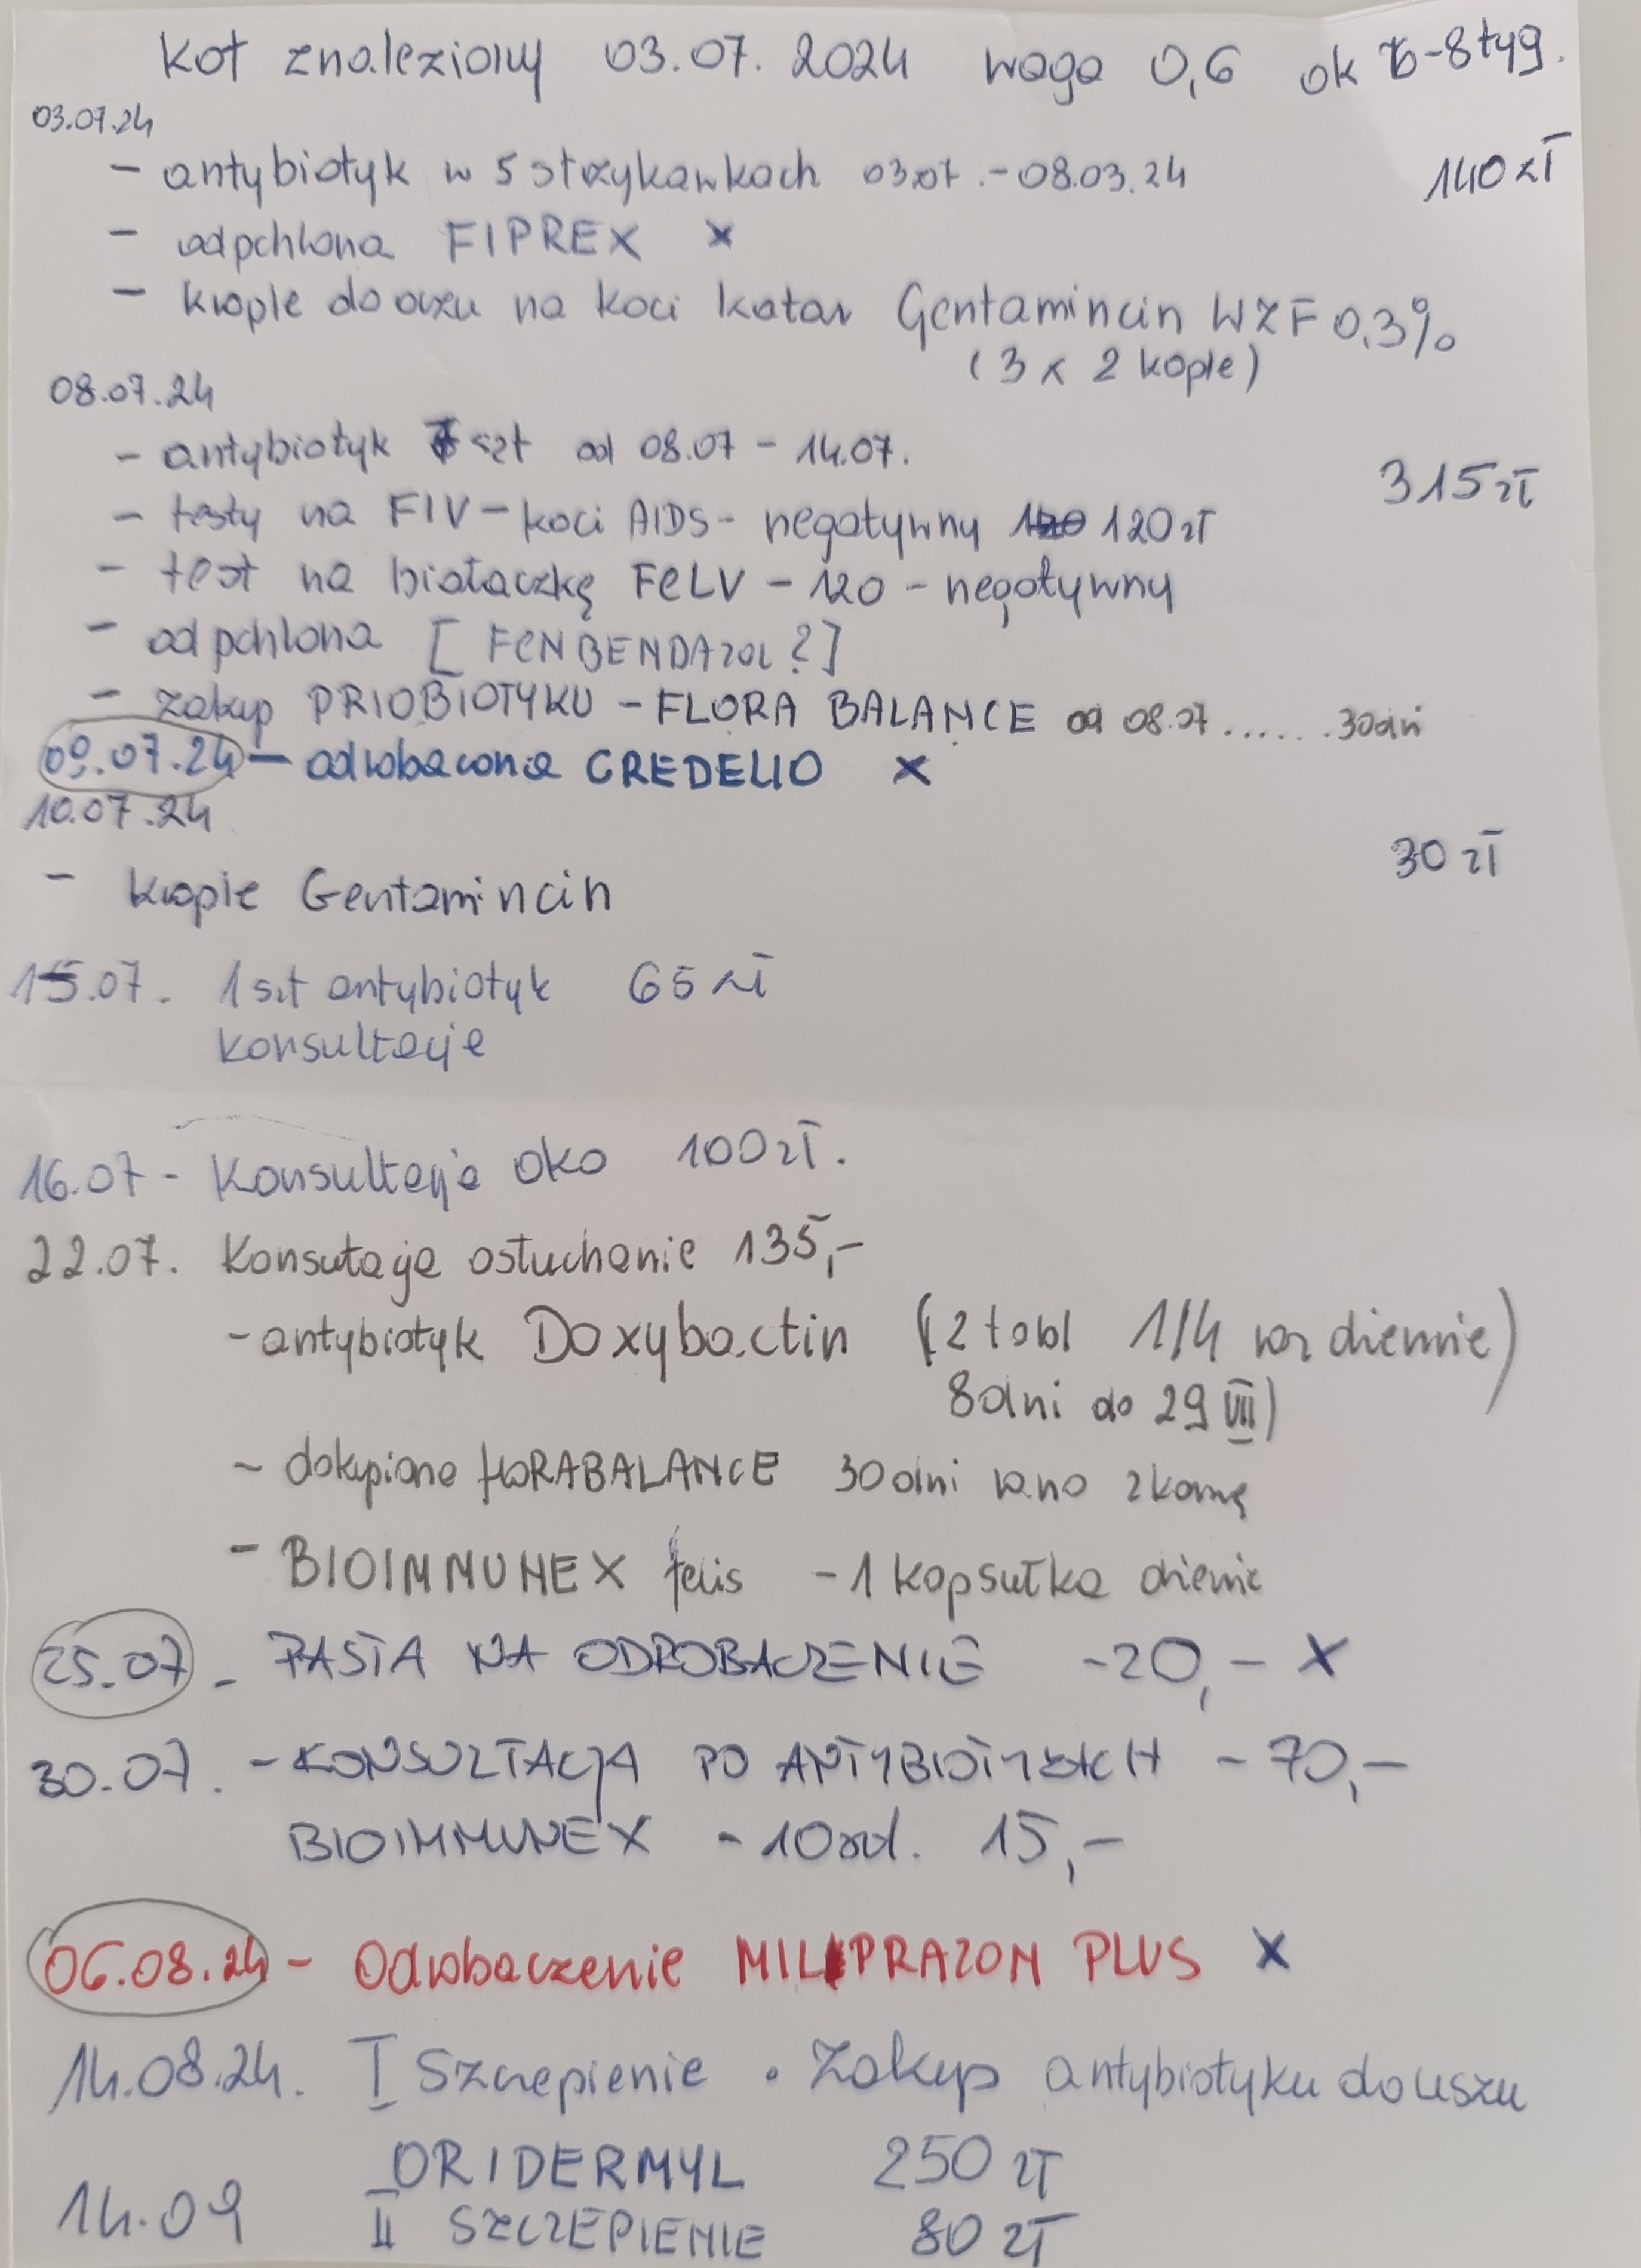 Kot znaleziony 03.07.2024 waga 0,6 ok 6-8 tyg.
03.07.24
- antybiotyk w 5 strzykawkach 03.07.-08.03.24 140 zł
- odpchlona FIPREX x
- krople do oczu na koci katar Gentamincin WZF 0,3%
(3 x 2 kople)
08.07.24
- antybiotyk szt od 08.07 - 14.07.
315 zł
- testy na FIV - koci AIDS - negatywny 120 zł
- test na białaczkę FeLV - 120 - negatywny
- odpchlona [FENBENDAZOL?]
- zakup PRIOBIOTYKU - FLORA BALANCE od 08.07.......30dni
09.07.24 - odrobaczona CREDELIO x
10.07.24
30 zł
- krople Gentamincin
15.07. 1 szt antybiotyk 65 zł
konsultacje
16.07 - Konsultacja oko 100 zł.
22.07. Konsutacja osłuchanie 135,-
- antybiotyk Doxybactin (2 tabl 1/4 raz dziennie)
8 dni do 29 VII)
- dokupiono FLORABALANCE 30 dni rano z karmą
- BIOIMMUNEX felis - 1 kapsułka dzienie
25.07 - PASTA NA ODROBACZENIE -20,- X
30.07. - KONSULTACJA PO ANTYBIOTYKACH - 70,-
BIOIMMUNEX - 10 szt. 15,-
06.08.24 - Odrobaczenie MILPRAZON PLUS X
14.08.24. I Szczepienie • Zakup antybiotyku do uszu
ORIDERMYL 250 zł
14.09 II SZCZEPIENIE 80 zł